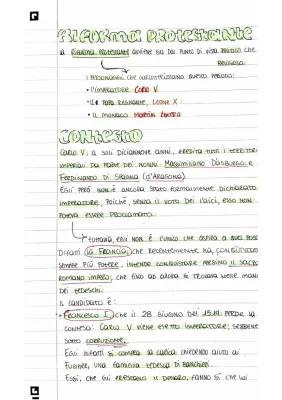 RIFORMA PROTESTANTE
la RIFORMA PROTESTANTE avviene sia dal punto di vista POLITICO che
RELIGIOSO.
I PERSONAGGI che caratterizzano questo periodo:
• l'imperatore CARLO V
• Il PAPA REGNANTE, LEONE X
• Il MONACO MARTIN LUTERO
CONTESTO
CARLO V, a soli diciannove anni, eredita tutti i territori
imperiali da parte dei nonni: MASSIMILIANO D'ASBURGO e
FERDINANDO DI SPAGNA (d'ARAGONA).
Egli però non è ancora stato formalmente dichiarato
imperatore, poiché, senza il voto dei laici, esso non
poteva essere proclamato.
Tuttavia, egli non è l'unico che aspira a quel
Difatti la FRANCIA, che recentemente ha
sempre più potere, intende conquistare persino il SACRO
ROMANO IMPERO, che fino ad allora si trovava nelle mani
dei tedeschi.
Il candidato è:
• FRANCESCO I, che il 28 GIUGNO del 1519 perde la
contesa: CARLO V viene eletto imperatore, sebbene
sotto corruzione.
Egli infatti si compra la carica chiedendo aiuto ai
FUGGER, una famiglia tedesca di banchieri.
Essi, che gli prestano il denaro, fanno sì che lui